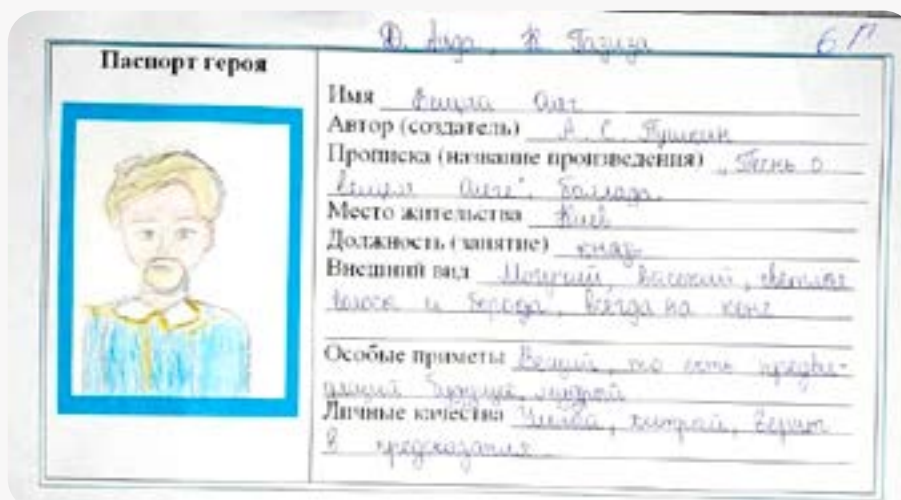 Д. Аида, К. Газиза 6 П
Паспорт героя
Имя Вещла Олг
Автор (создатель) А. С. Пушкин
Прописка (название произведения) „Песнь о
вещем Олеге". Баллада.
Место жительства Киев
Должность (занятие) князь
Внешний вид Могучий, высокий, светлые
волосы и борода, всегда на коне
Особые приметы Вещий, то есть предви-
дящий будущее, мудрый
Личные качества хитрый, верит
в предсказания